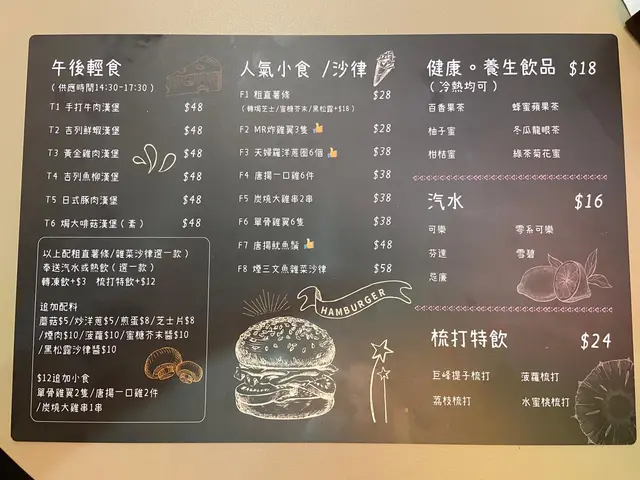 午後輕食
(供應時間14:30-17:30)
T1 手打牛肉漢堡 $48
T2 吉列鮮蝦漢堡 $48
T3 黃金雞肉漢堡 $48
T4 吉列魚柳漢堡 $48
T5 日式豚肉漢堡 $48
T6 焗大啡菇漢堡(素) $48
以上配粗直薯條/雜菜沙律(選一款)
奉送汽水或熱飲(選一款)
轉凍飲+$3 梳打特飲+$12
追加配料
蘑菇$5/炒洋蔥$5/煎蛋$8/芝士片$8
/煙肉$10/菠蘿$10/蜜糖芥末醬$10
/黑松露沙律醬$10
$12追加小食
單骨雞翼2隻/唐揚一口雞2件
/炭燒大雞串1串
人氣小食 /沙律
F1 粗直薯條 $28
(轉焗芝士/蜜糖芥末/黑松露+$18)
F2 MR炸雞翼3隻 $28
F3 天婦羅洋蔥圈6個 $38
F4 唐揚一口雞6件 $38
F5 炭燒大雞串2串 $38
F6 單骨雞翼6隻 $38
F7 唐揚魷魚鬚 $48
F8 煙三文魚雜菜沙律 $58
HAMBURGER
健康。養生飲品 $18
(冷熱均可)
百香果茶 蜂蜜蘋果茶
柚子蜜 冬瓜龍眼茶
柑桔蜜 綠茶菊花蜜
汽水 $16
可樂 零系可樂
芬達 雪碧
忌廉
梳打特飲 $24
巨峰提子梳打 菠蘿梳打
荔枝梳打 水蜜桃梳打